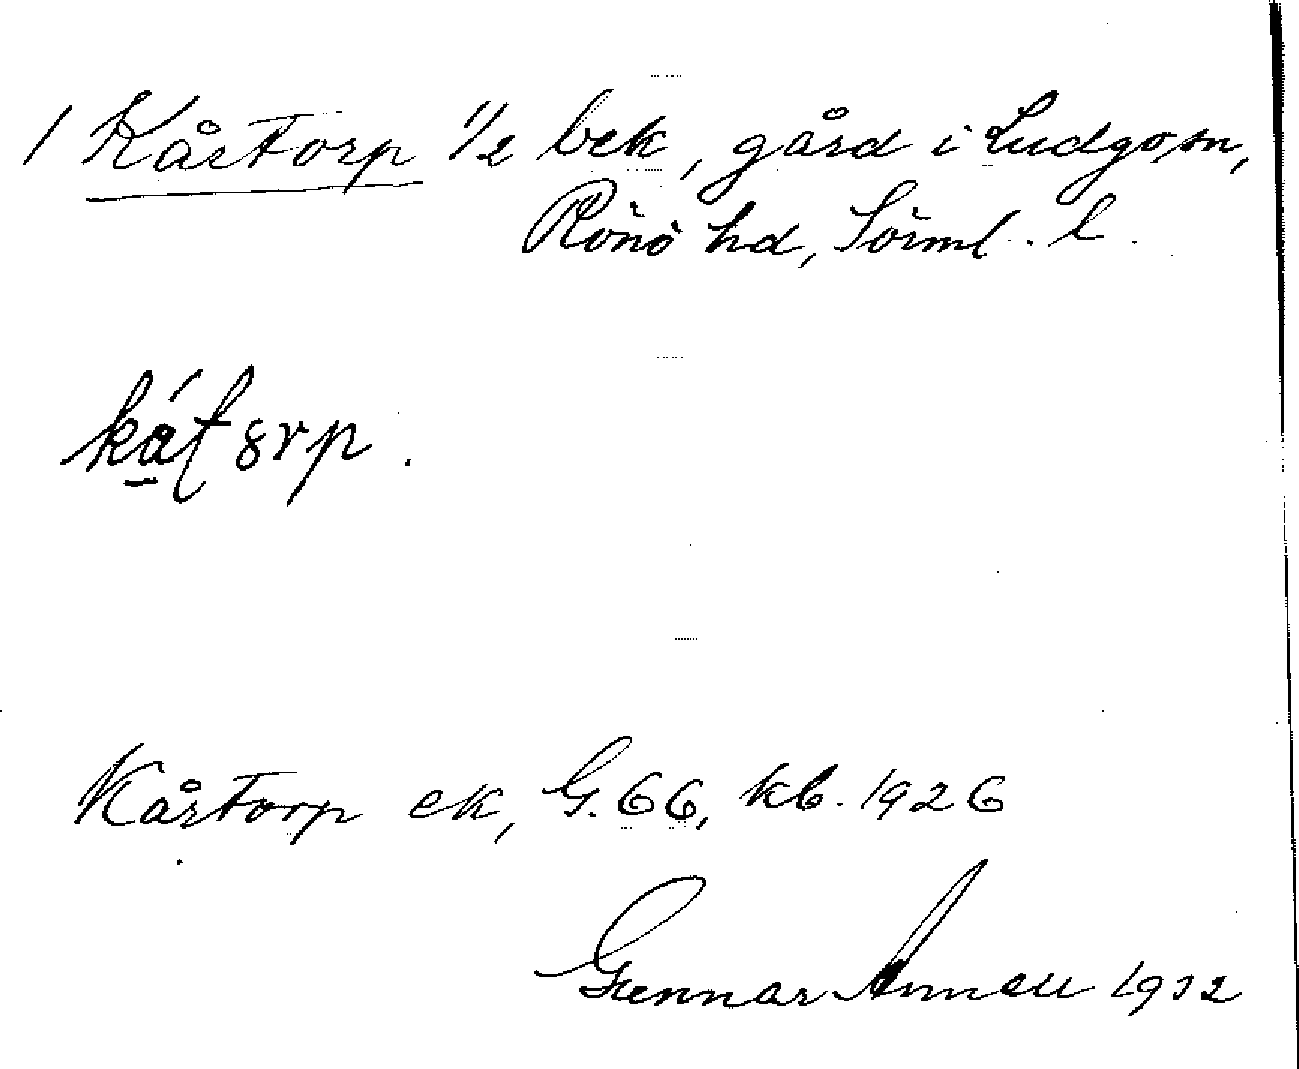 1 Kårtorp 1/2 bek, gård i Ludgo sn,
Rönö hd, Sörml. l.
Kårtorp ek, G. 66, kb. 1926
Gunnar Annell 1932